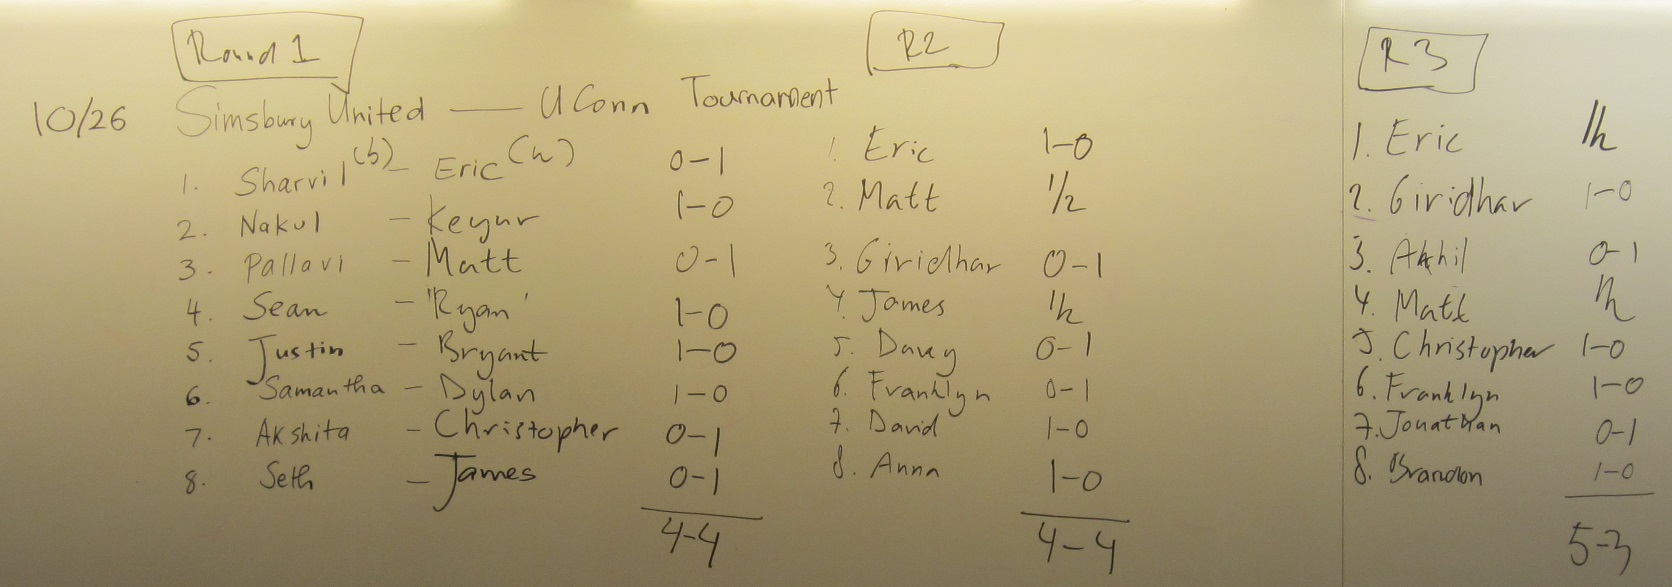 Round 1
10/26 Simsbury United — UConn Tournament
1. Sharvil (b) - Eric (w) 0-1
2. Nakul - Keyur 1-0
3. Pallavi - Matt 0-1
4. Sean - 'Ryan' 1-0
5. Justin - Bryant 1-0
6. Samantha - Dylan 1-0
7. Akshita - Christopher 0-1
8. Seth - James 0-1
4-4
R2
1. Eric 1-0
2. Matt 1/2
3. Giridhar 0-1
4. James 1/2
5. Davey 0-1
6. Franklyn 0-1
7. David 1-0
8. Anna 1-0
4-4
R3
1. Eric 1/2
2. Giridhar 1-0
3. Akhil 0-1
4. Matt 1/2
5. Christopher 1-0
6. Franklyn 1-0
7. Jonathan 0-1
8. Brandon 1-0
5-3